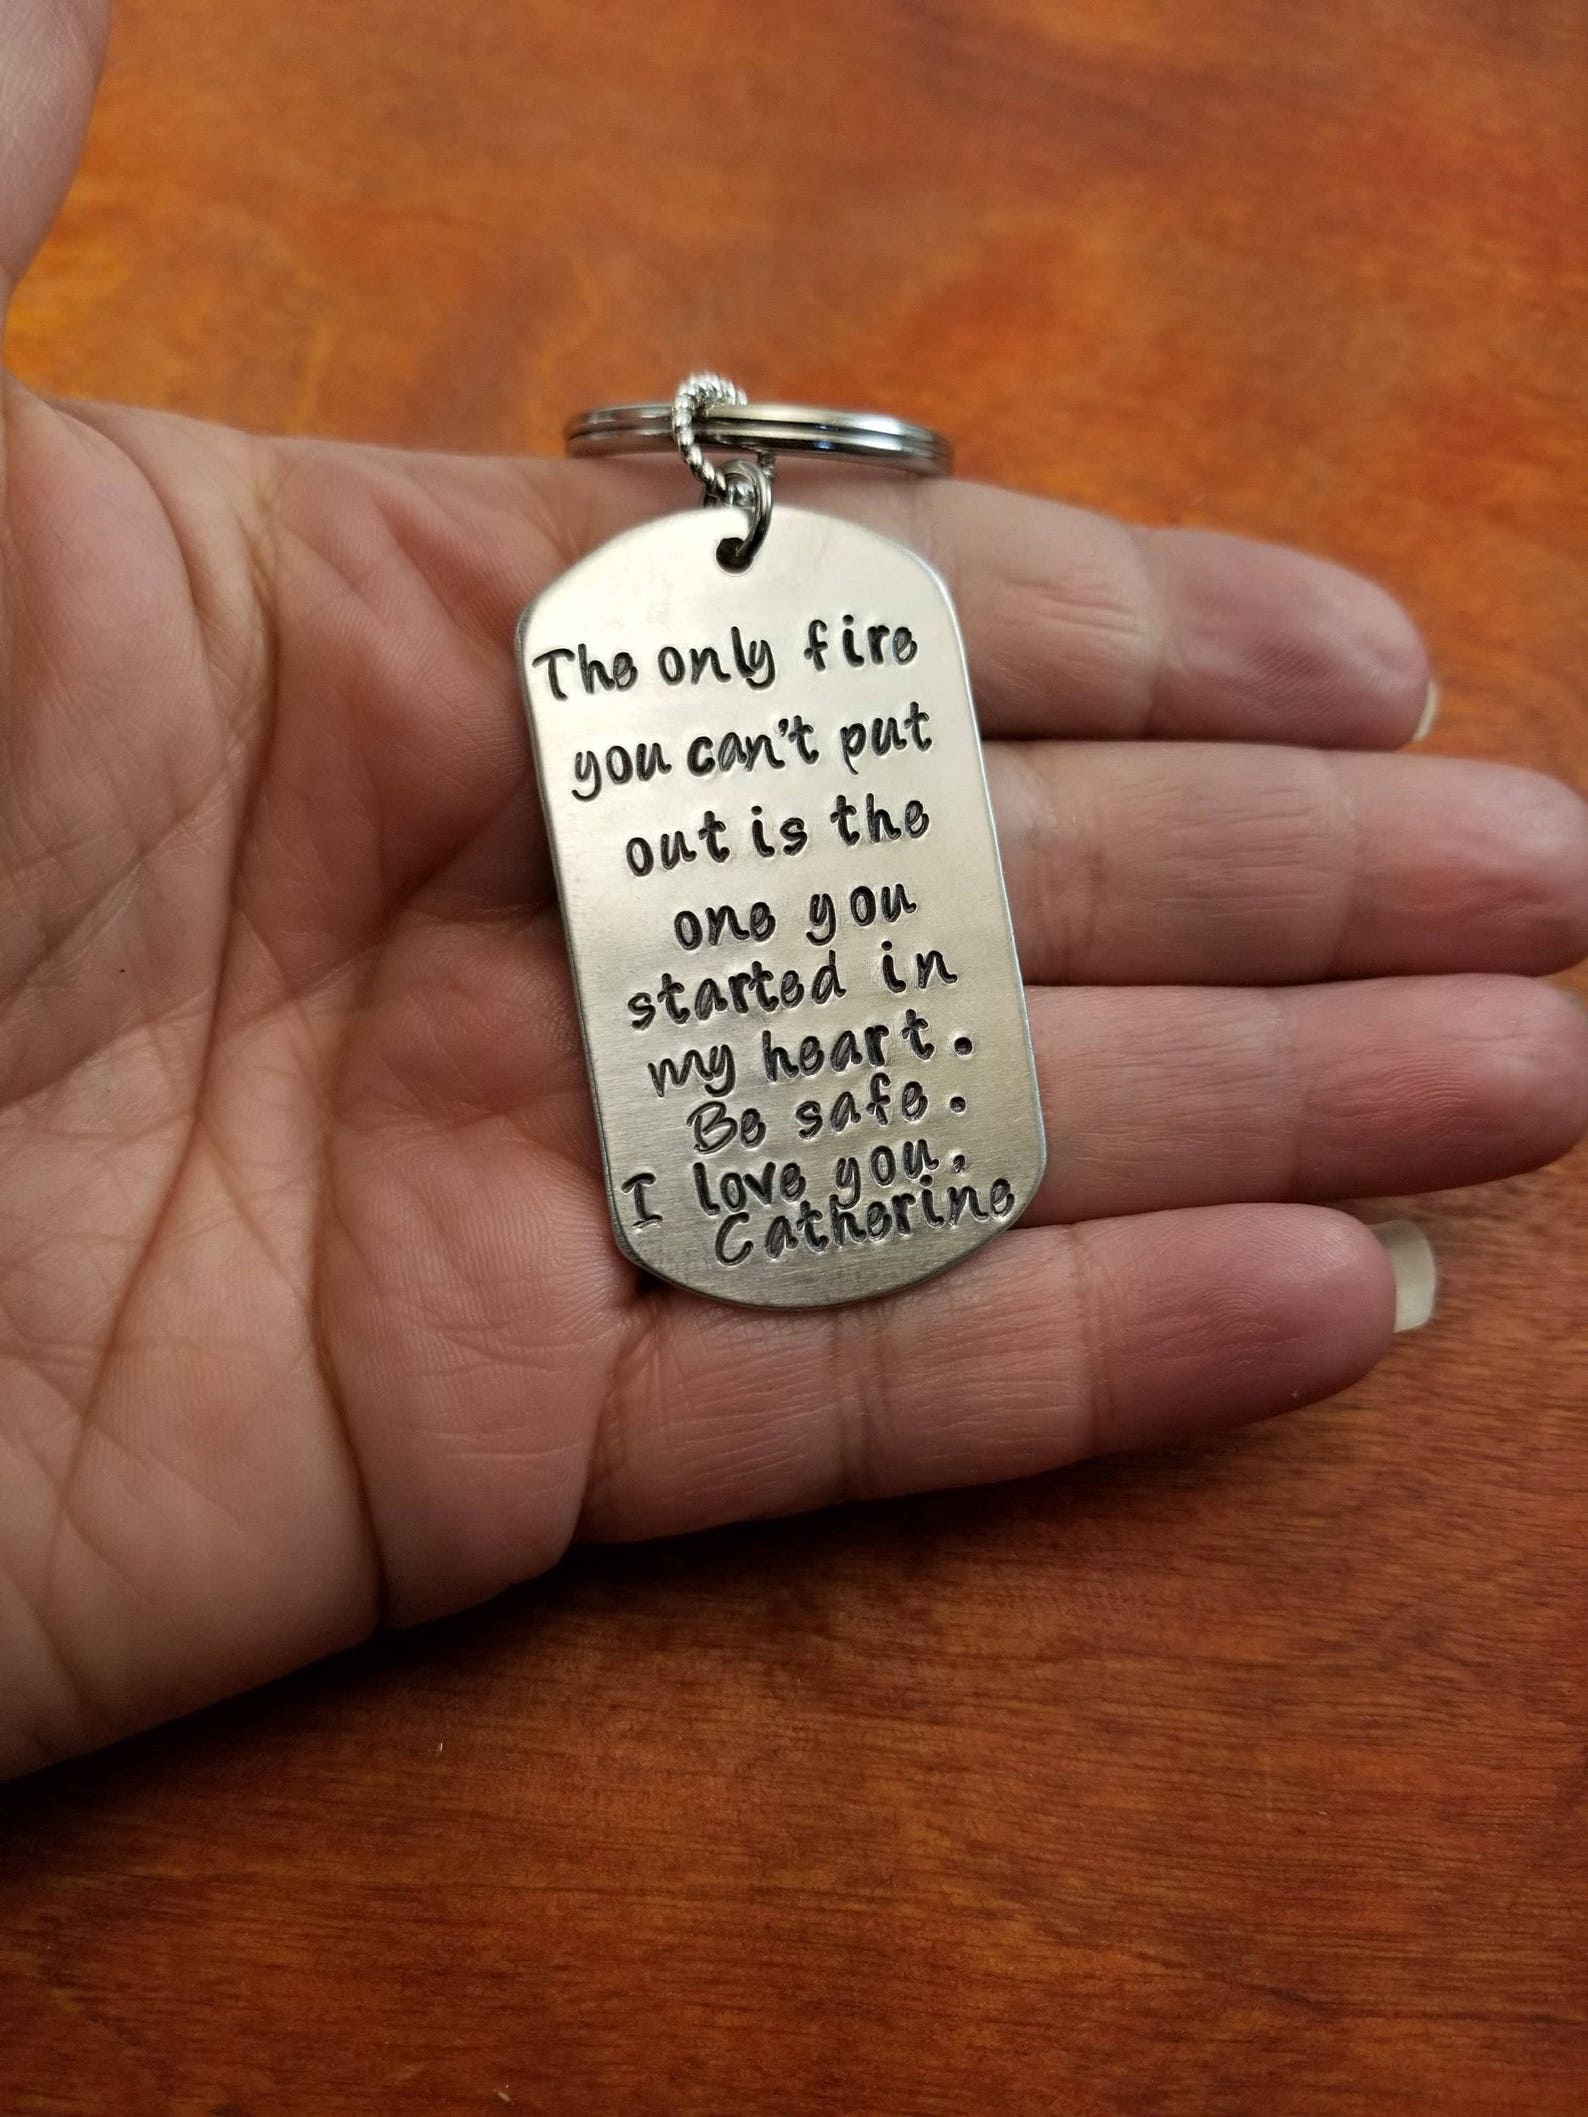 The only fire
you can't put
out is the
one you
started in
my heart.
Be safe.
I love you.
Catherine